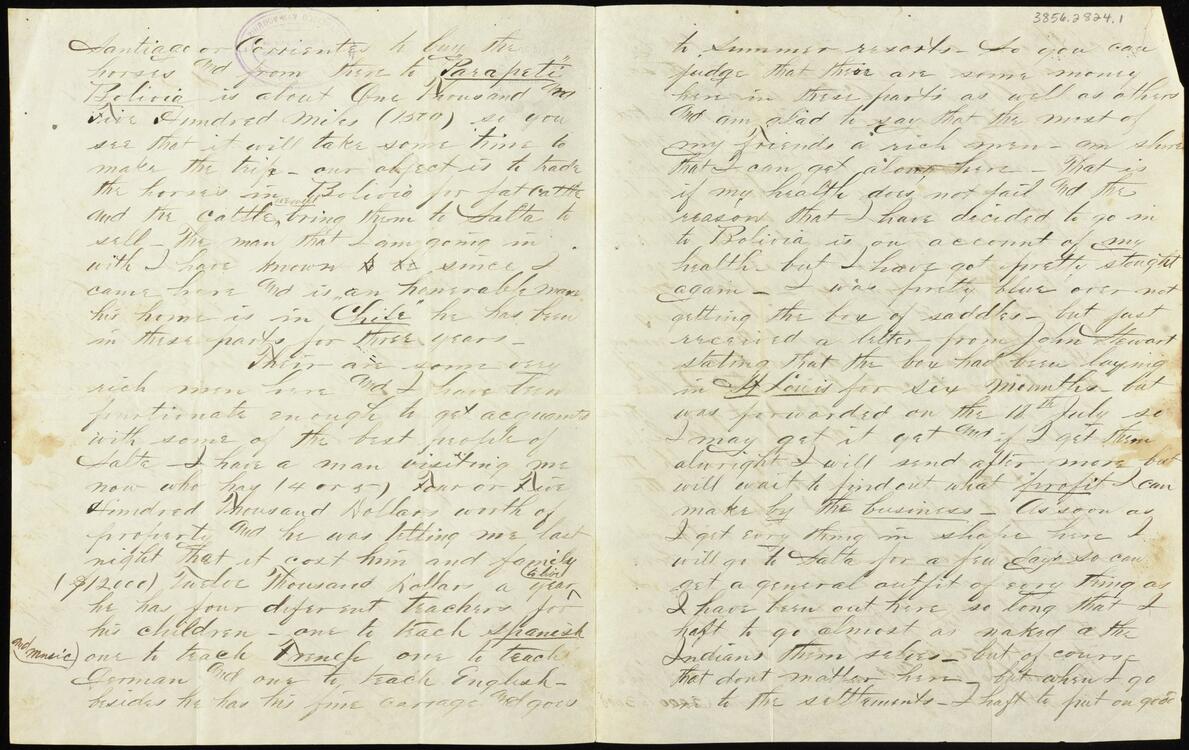 3856.2824.1
Santiago or Corrientes to buy the
horses and from there to "Parapeti"
Bolivia is about One Thousand and
Five Hundred Miles (1500) so you
see that it will take some time to
make the trip - our object is to trade
the horses in Bolivia for fat cattle
and the cattle, we will bring them to Salta to
sell - The man that I am going in
with I have known since I
came here and is "an honerable man
his home is in "Chile" he has been
in these parts for three years -
Their are some very
rich men here and I have been
fourtionate enough to get acquaants
with some of the best people of
Salta - I have a man visiting me
now who has (4 or 5) Four or Five
Hundred Thousand Dollars worth of
property and he was telling me last
night that it cost him and family
($12000) Twelve Thousand Dollars a year to live
he has four diferent teachers for
his children - one to teach Spanish
and music) one to teach French one to teach
German and one to teach English -
besides he has his fine carrage and goes
to summer resorts - So you can
judge that there are some money
here in these parts as well as others
and am glad to say that the most of
my friends a rich men - am shure
that I can get along here - That is
if my health does not fail and the
reason that I have decided to go in
to Bolivia is on account of my
health but I have got pretty stought
again - I was pretty blue over not
getting the box of saddles - but just
received a letter from John Stewart
stating that the box had been laying
in St Louis for six mounths - but
was forwarded on the 18th July so
I may get it yet and if I get them
alwright I will send after more but
will want to find out what profit I can
make by the business - As soon as
I get evry thing in shape here I
will go to Salta for a few days so can
get a general outfit of evry thing as
I have been out here so long that I
haft to go almost as naked a the
Indians them selves - but of course
that dont matter here - but when I go
to the settlements - I haft to put on good